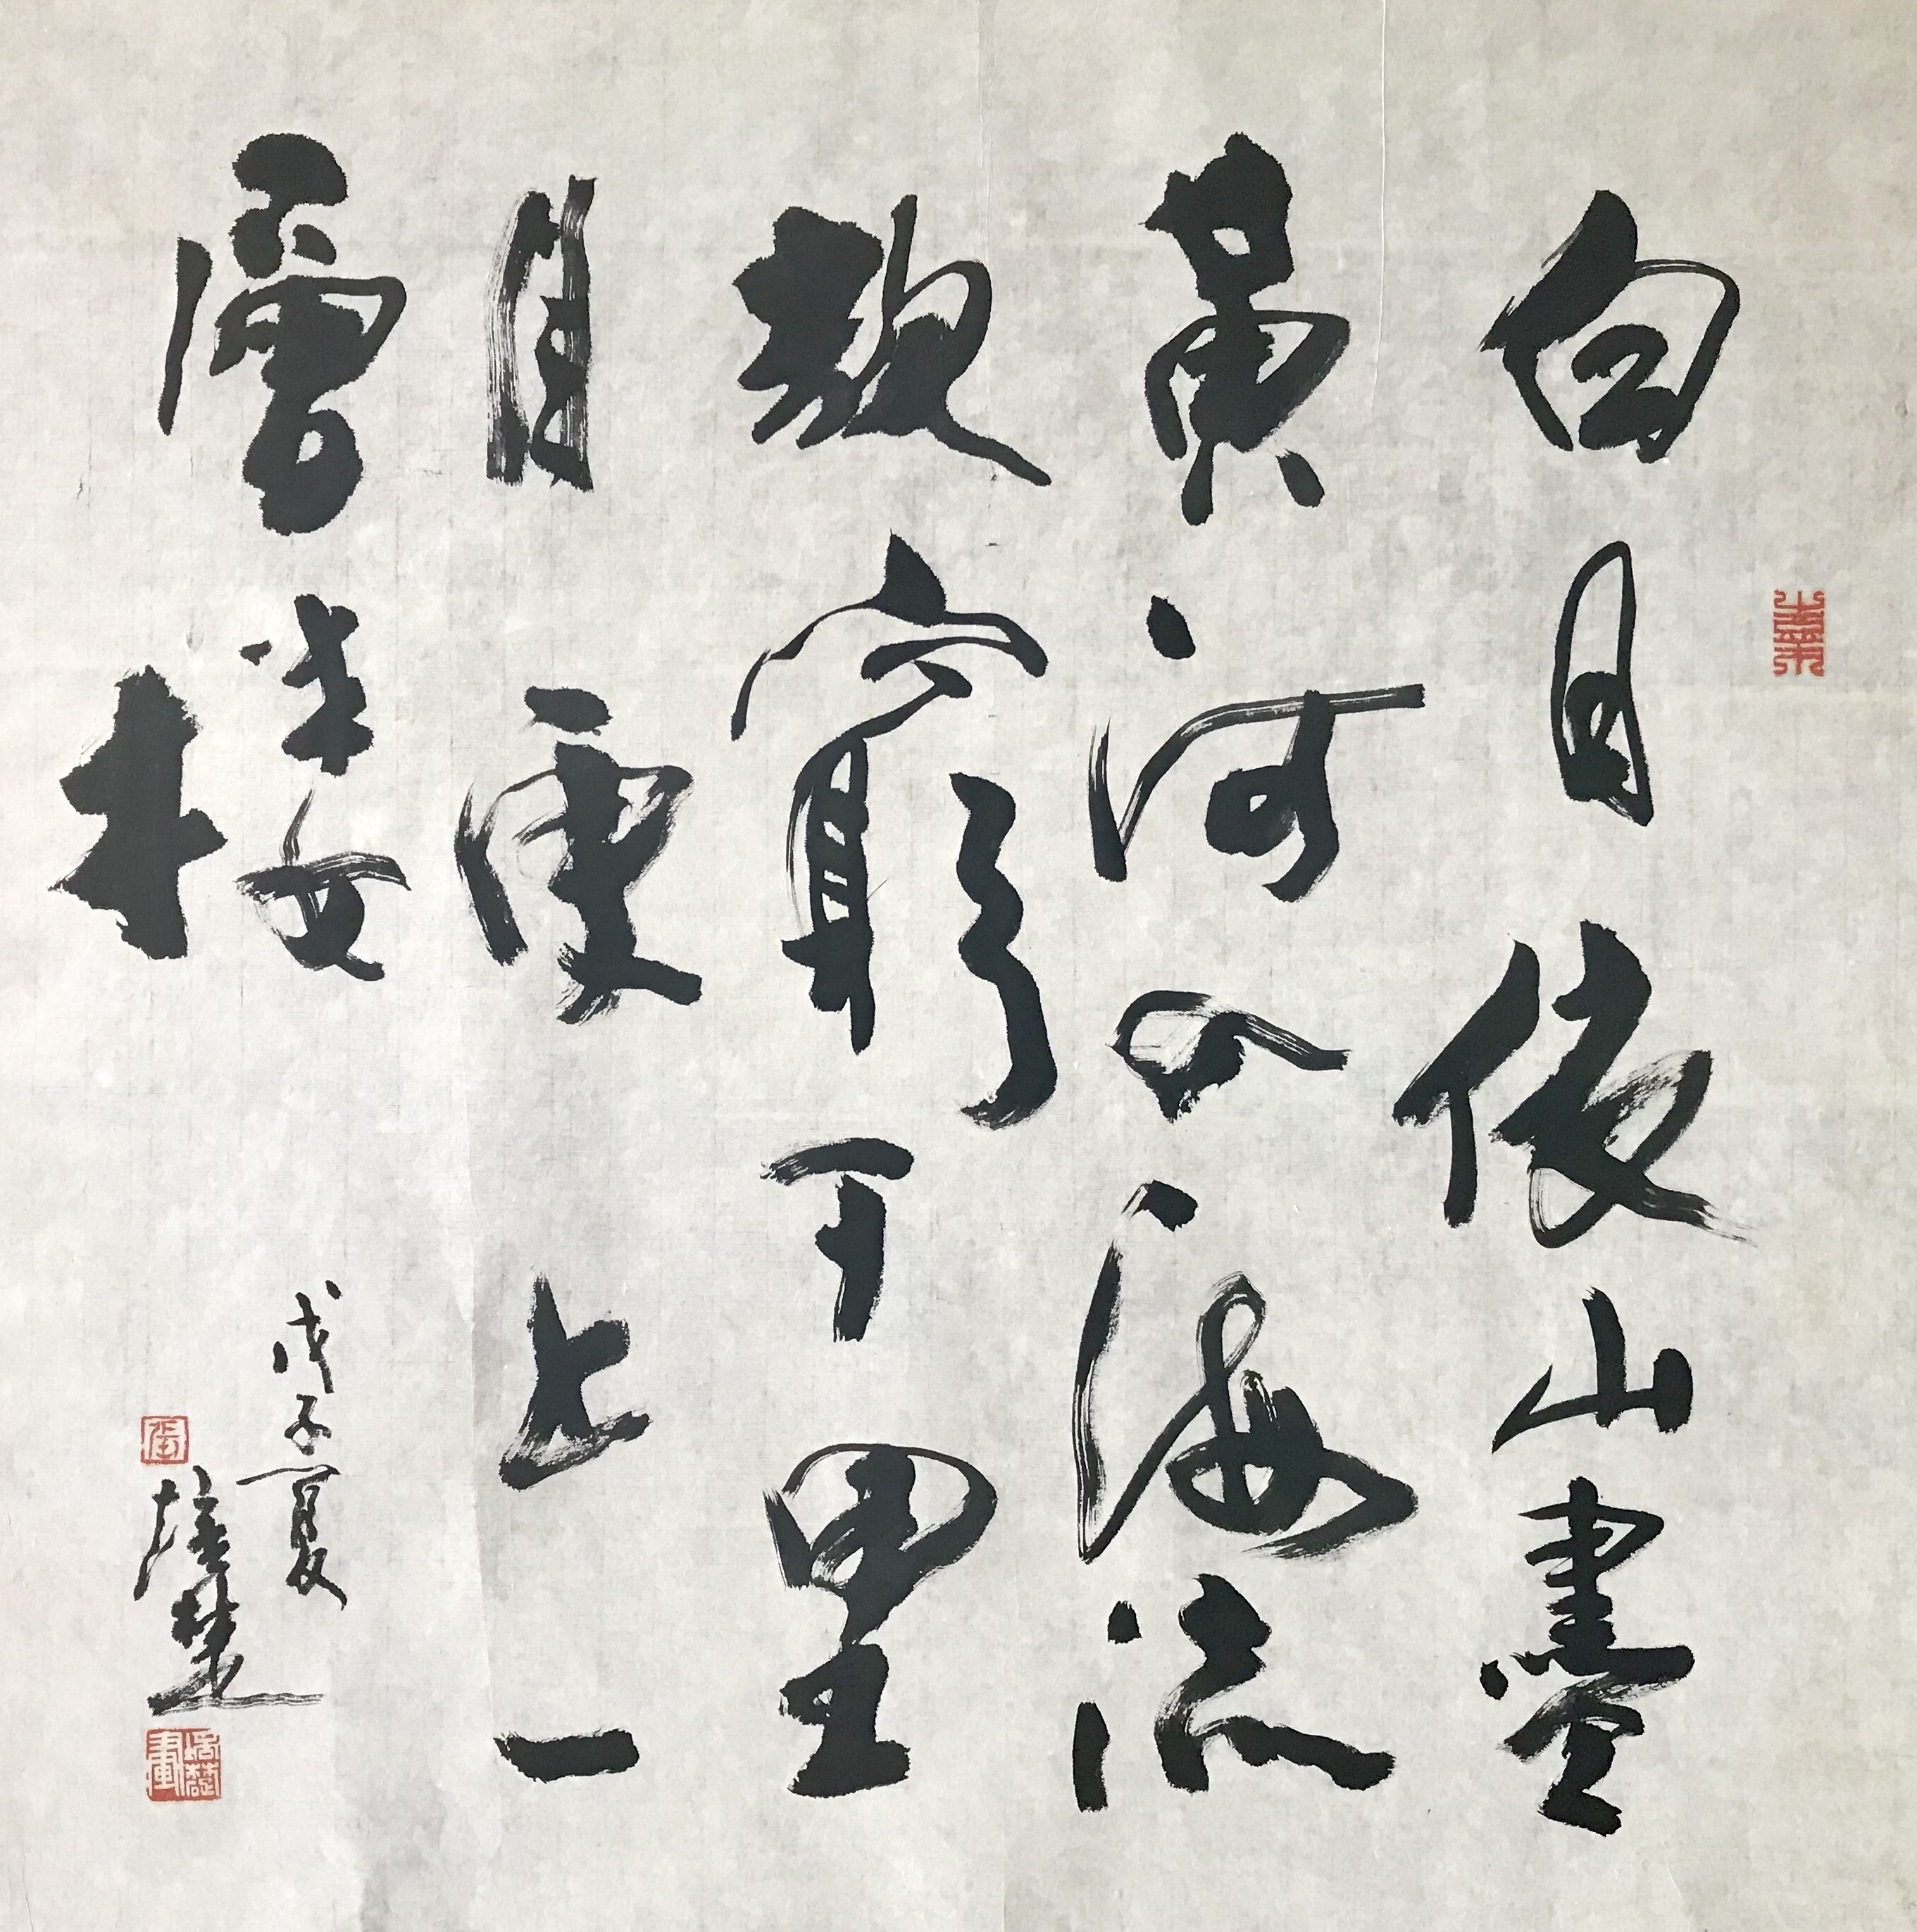 白日依山盡
黃河入海流
欲窮千里
目更上一
層樓
戊子夏
培楚